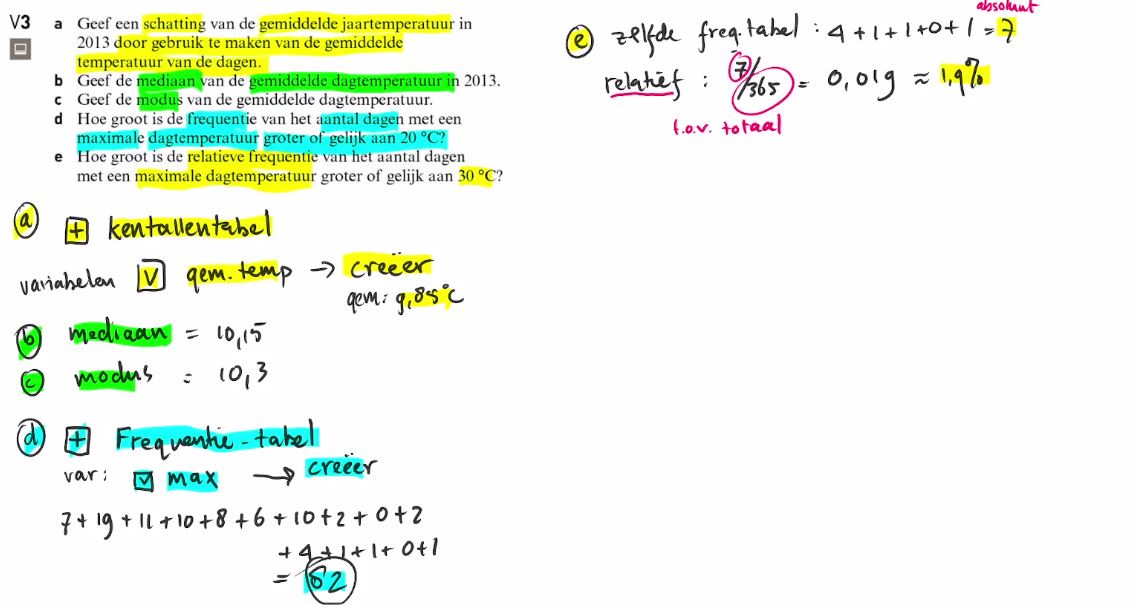 V3 a Geef een schatting van de gemiddelde jaartemperatuur in
2013 door gebruik te maken van de gemiddelde
temperatuur van de dagen.
b Geef de mediaan van de gemiddelde dagtemperatuur in 2013.
c Geef de modus van de gemiddelde dagtemperatuur.
d Hoe groot is de frequentie van het aantal dagen met een
maximale dagtemperatuur groter of gelijk aan 20 °C?
e Hoe groot is de relatieve frequentie van het aantal dagen
met een maximale dagtemperatuur groter of gelijk aan 30 °C?
a + kentallentabel
variabelen V gem. temp → creëer
gem: 9,85°C
b mediaan = 10,15
c modus = 10,3
d + Frequentie-tabel
var: V max → creëer
7 + 19 + 11 + 10 + 8 + 6 + 10 + 2 + 0 + 2
+ 4 + 1 + 1 + 0 + 1
= 82
absoluut
e zelfde freq. tabel : 4 + 1 + 1 + 0 + 1 = 7
relatief : 7/365 = 0,019 ≈ 1,9%
t.o.v. totaal